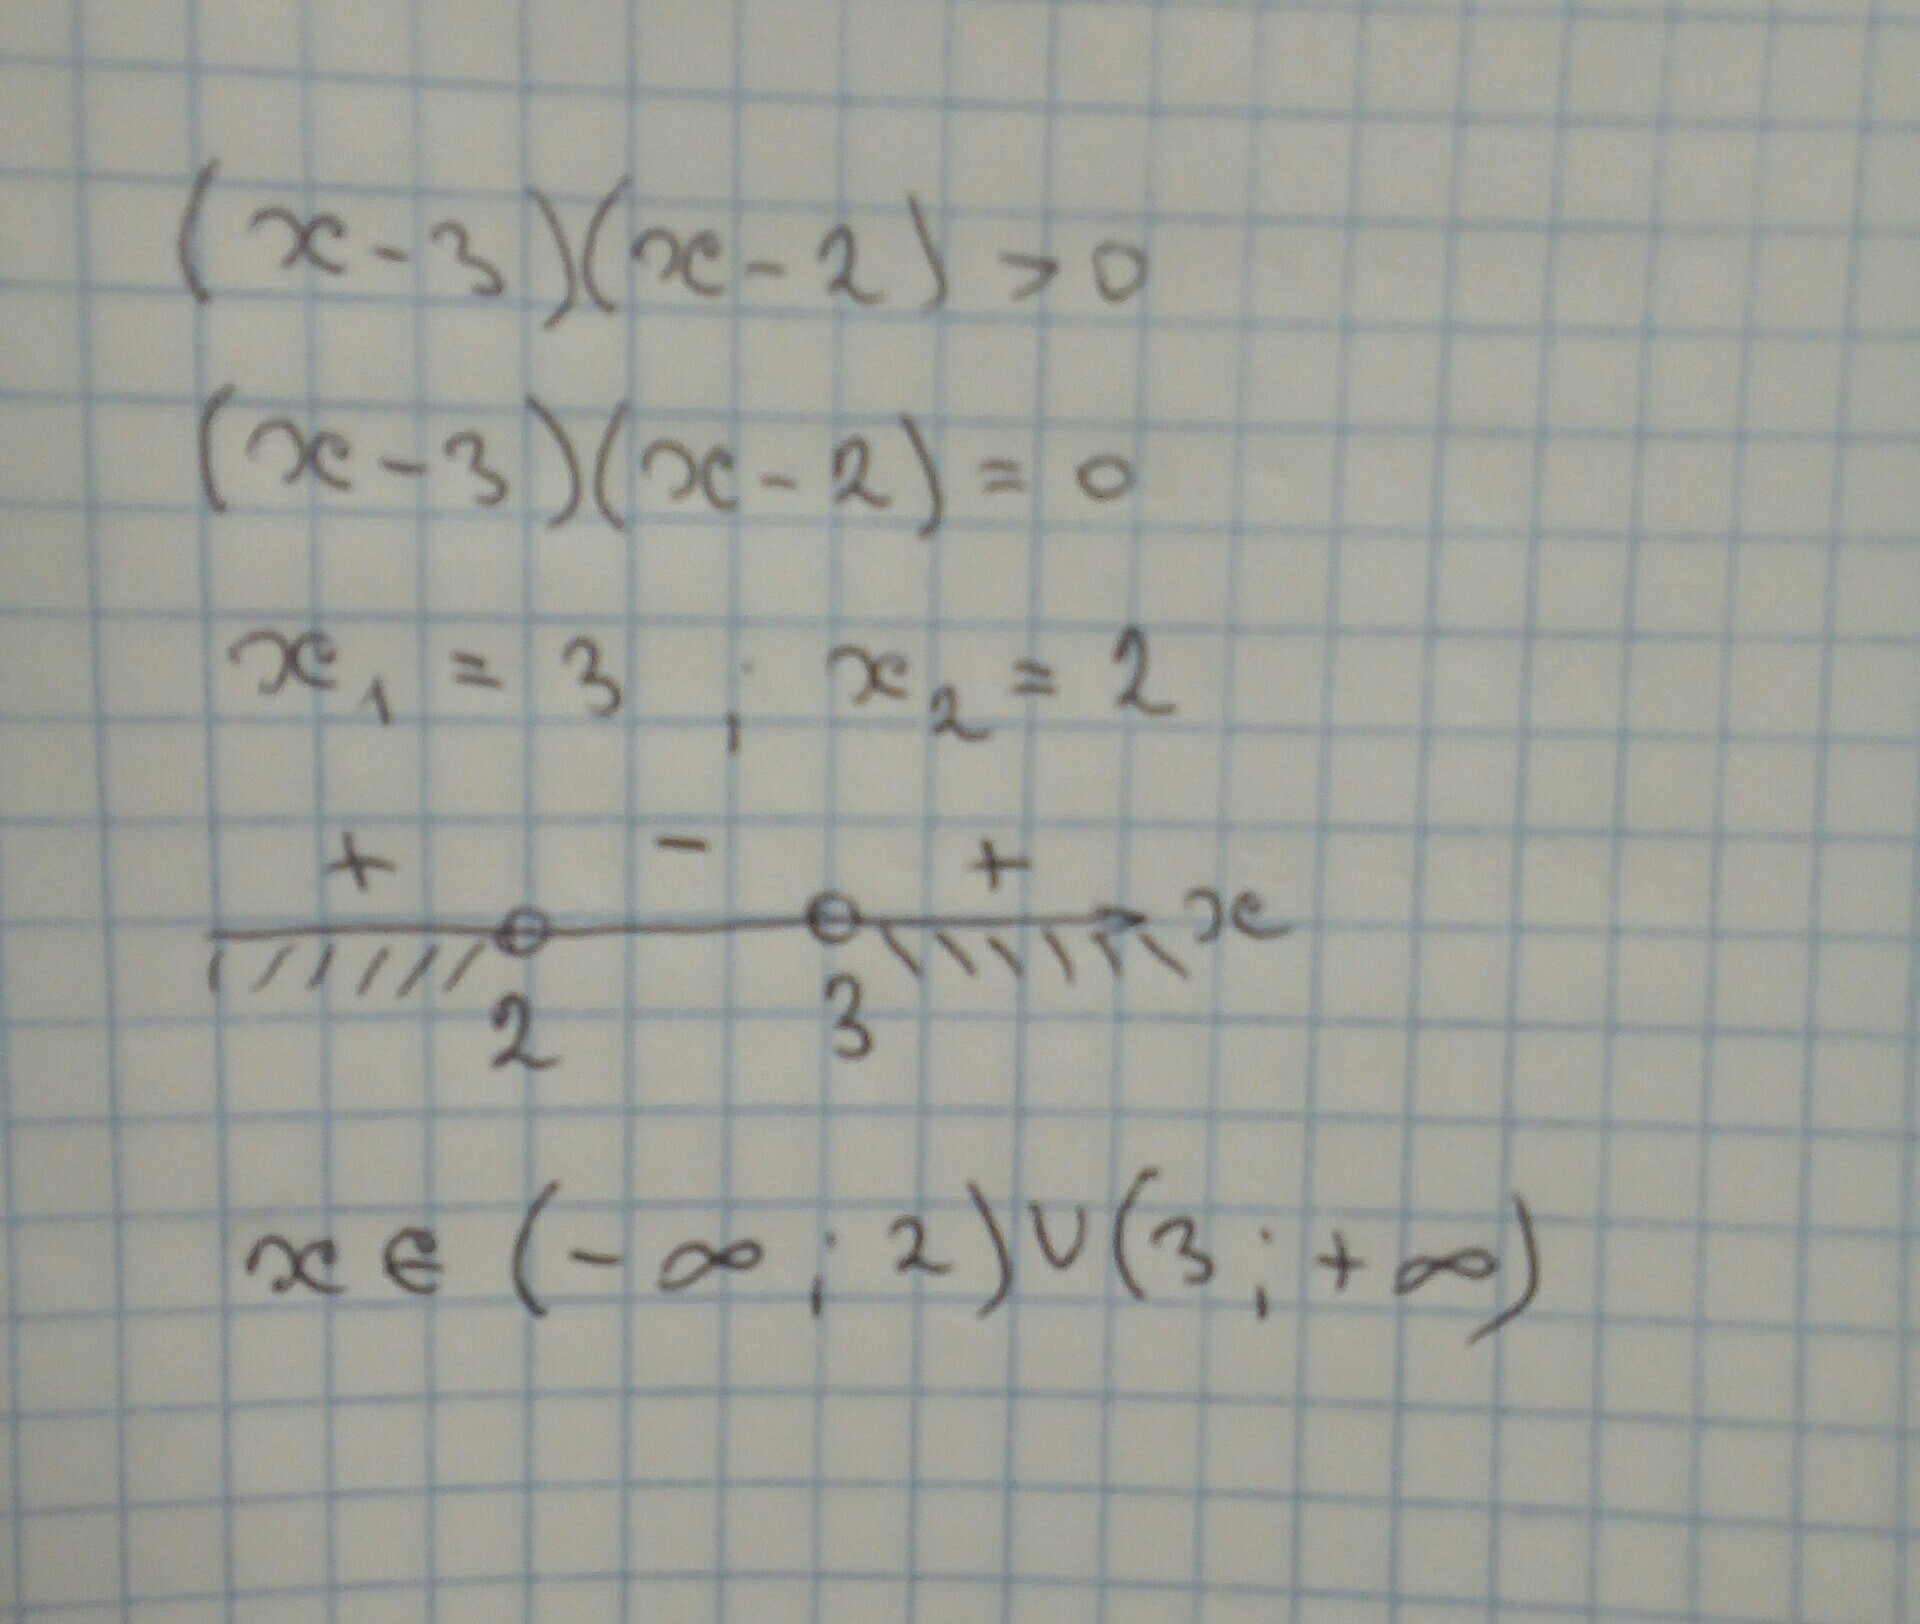 (x-3)(x-2)>0
(x-3)(x-2)=0
x₁=3 ; x₂=2
+ - +
x
2 3
x∈(-∞;2)∪(3;+∞)